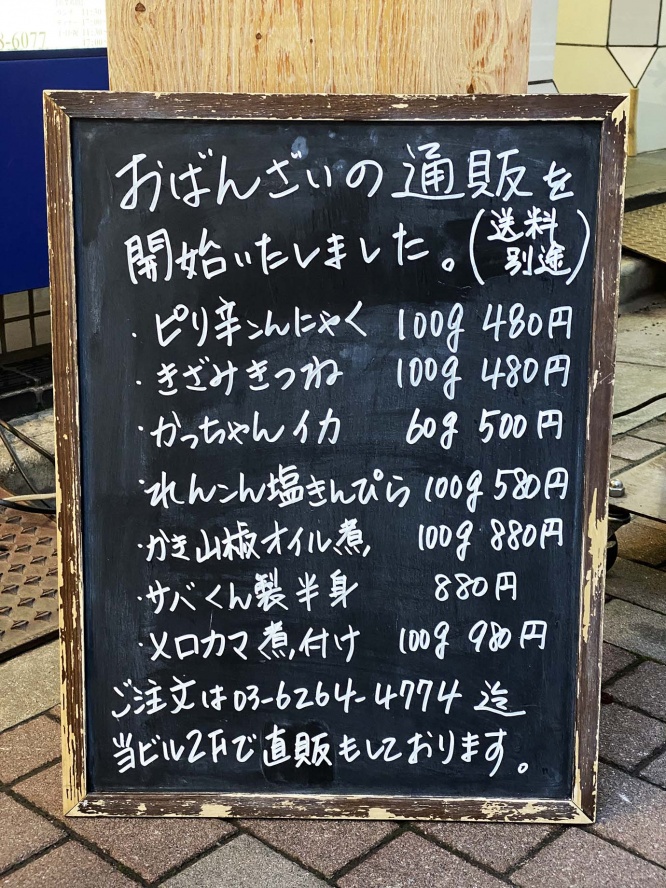 8-6077
おばんざいの通販を
開始いたしました。(送料別途)
・ピリ辛こんにゃく 100g 480円
・きざみきつね 100g 480円
・かっちゃんイカ 60g 500円
・れんこん塩きんぴら 100g 580円
・かき山椒オイル煮 100g 880円
・サバくん製半身 880円
・メロカマ煮付け 100g 980円
ご注文は03-6264-4774迄
当ビル2Fで直販もしております。